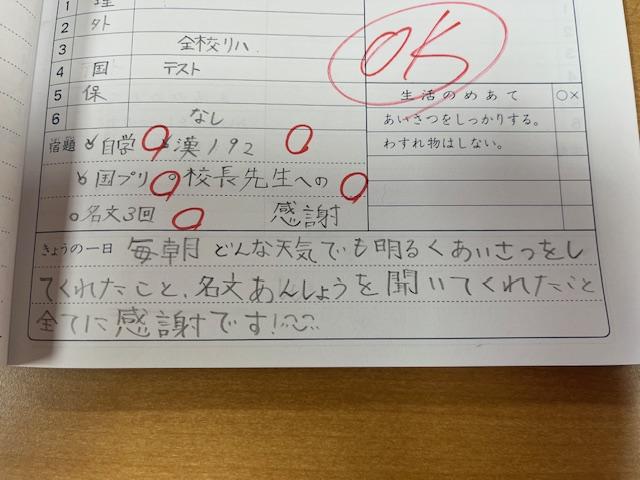 1 理
2 外
3 全校リハ
4 国 テスト
5 保
6 なし
OK
生活のめあて ○×
あいさつをしっかりする。
わすれ物はしない。
宿題 自学 漢192
国プリ 校長先生への
名文3回 感謝
きょうの一日 毎朝 どんな天気でも明るくあいさつをし
てくれたこと、名文あんしょうを聞いてくれたこと
全てに感謝です!